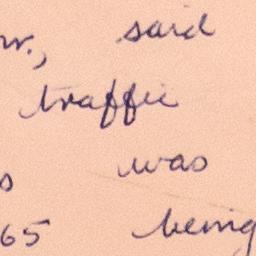 said
traffic
was
65 being